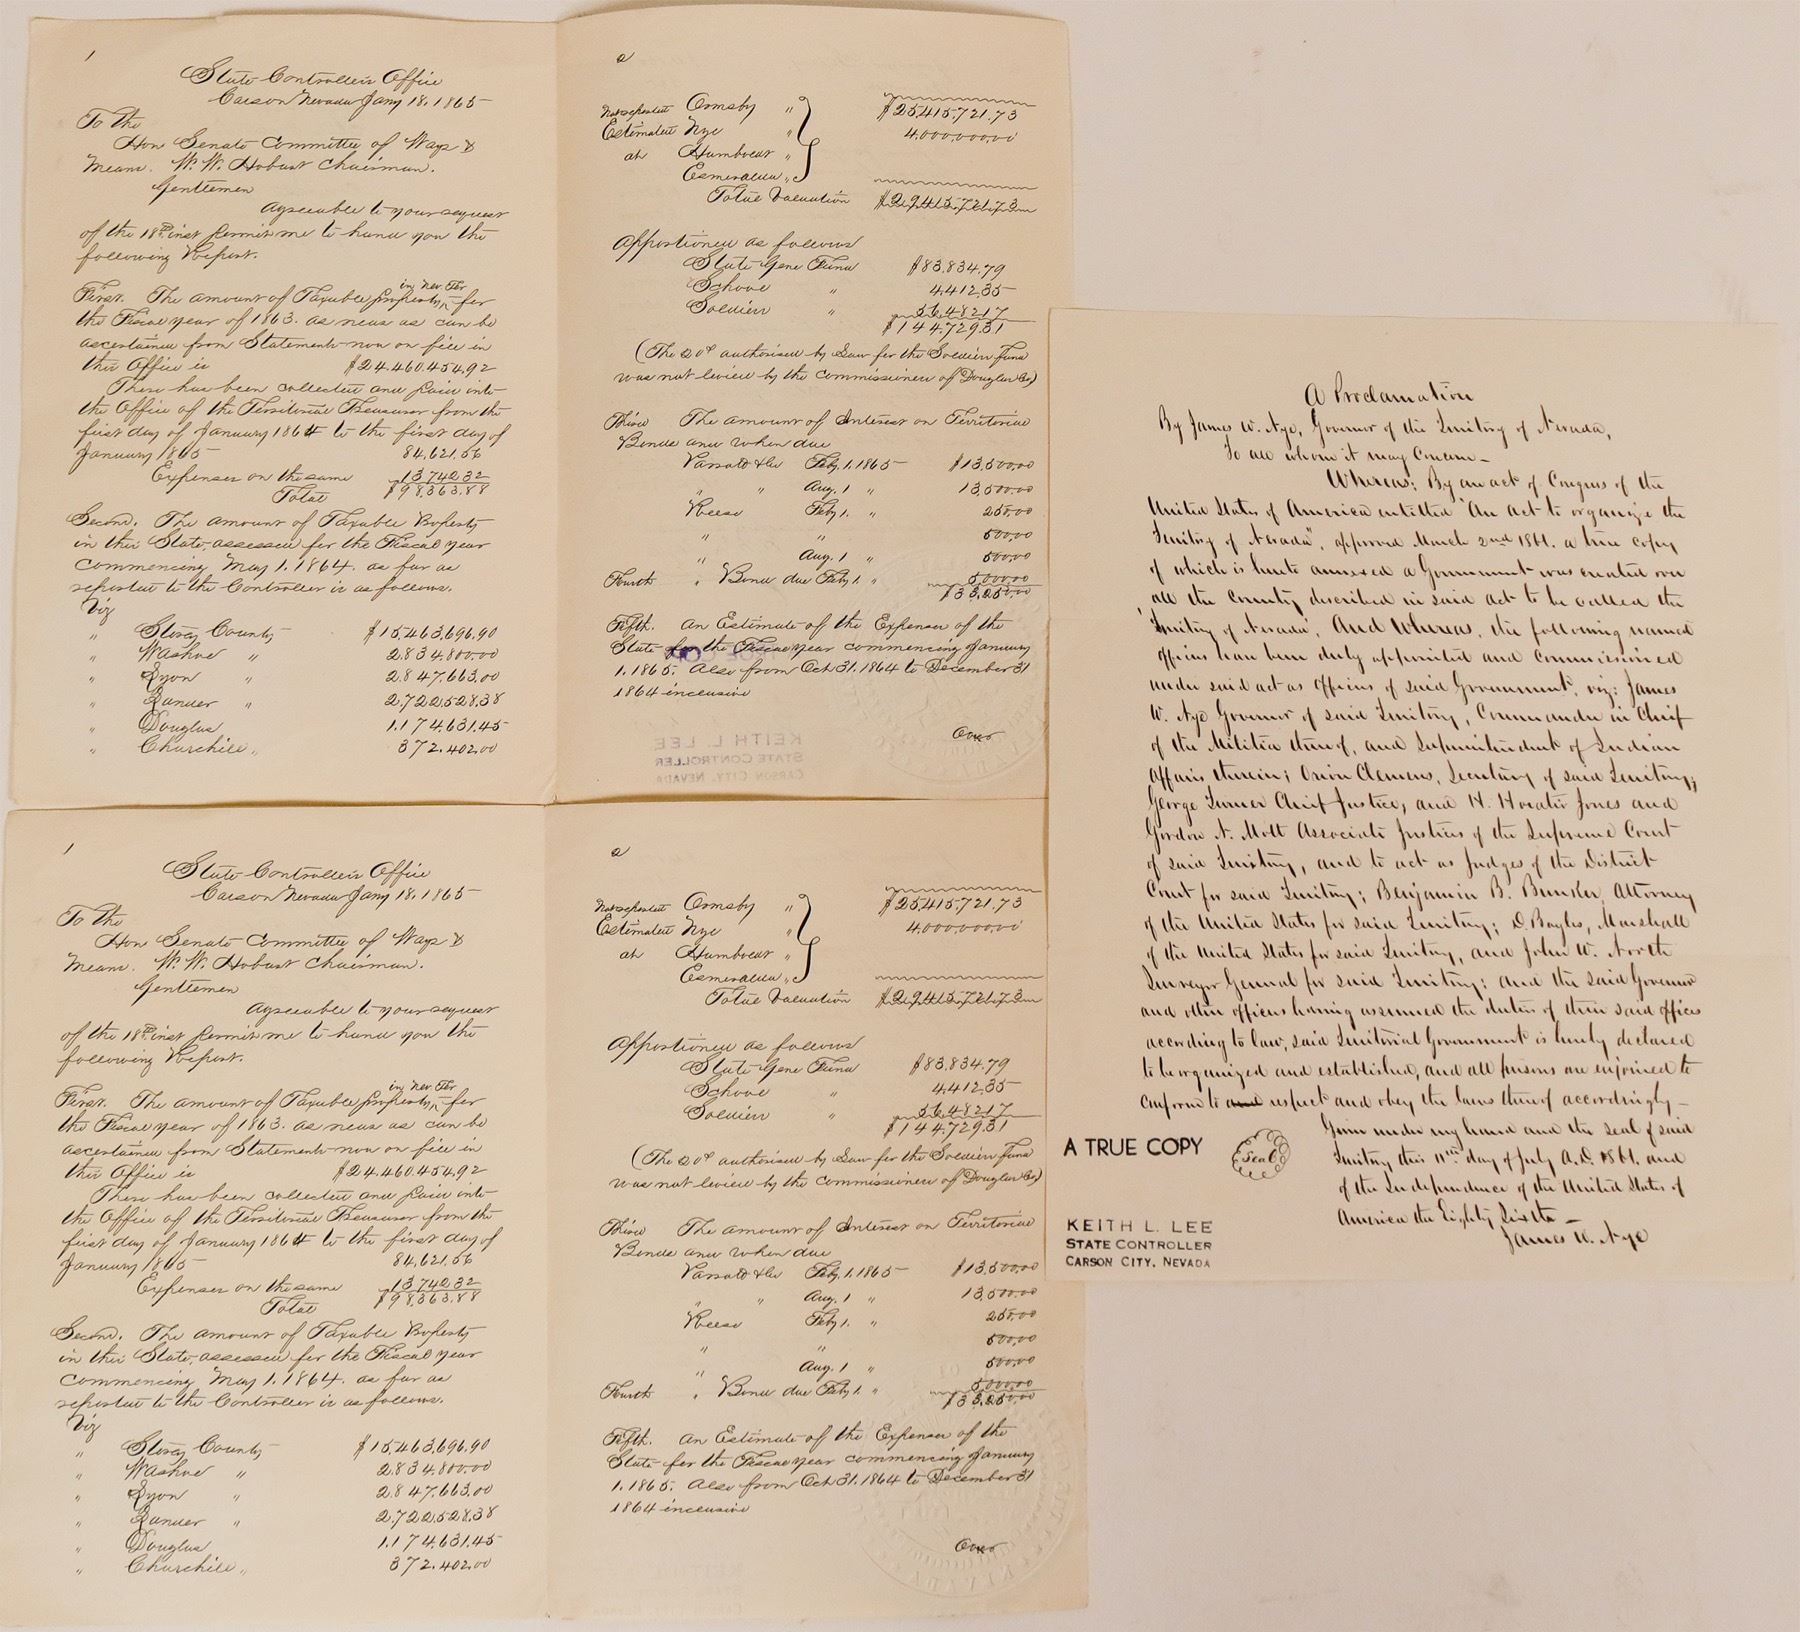 1
State Controllers Office
Carson Nevada Jany 18, 1865
To the
Hon Senate Committee of Ways &
Means. W. W. Hobart Chairman.
Gentlemen
Agreeable to your request
of the 18th inst permit me to hand you the
following Report.
First. The amount of Taxable property in Nev Ter for
the Fiscal year of 1863. as near as can be
ascertained from Statements now on file in
this Office is $24.460.454.92
There has been collected and paid into
the Office of the Territorial Treasurer from the
first day of January 1864 to the first day of
January 1865 84,621.56
Expenses on the same 13,742.32
Total $98,363.88
Second. The amount of Taxable Property
in this State, assessed for the Fiscal year
commencing May 1. 1864. as far as
reported to the Controller is as follows.
Viz
" Storey County $15,463,696.90
" Washoe " 2.834.800.00
" Lyon " 2.847.663.00
" Lander " 2.722.528.38
" Douglas 1.174.631.45
" Churchill " 372.402.00
2
Not reported Ormsby " $25,415,721.73
Estimated Nye " 4,000,000.00
at Humboldt "
Esmeralda "
Total Valuation $29,415,721.73
Apportioned as follows
State Genl Fund $83,834.79
School " 4,412.35
Soldiers " 56,482.17
$144,729.31
(The 20¢ authorised by Law for the Soldiers Fund
was not levied by the commissioners of Douglas Co)
Third The amount of Interest on Territorial
Bonds and when due
Feby 1. 1865 $13,500.00
" " Aug. 1 " 13,500.00
Reese Feby 1. " 250.00
" " 500.00
" Aug. 1 " 500.00
Fourth " Bond due Feby 1. " 5,000.00
$33,250.00
Fifth. an Estimate of the Expenses of the
State for the Fiscal year commencing January
1. 1865. Also from Oct 31. 1864 to December 31
1864 inclusive
Over
KEITH L. LEE
STATE CONTROLLER
CARSON CITY, NEVADA
1
State Controllers Office
Carson Nevada Jany 18, 1865
To the
Hon Senate Committee of Ways &
Means. W. W. Hobart Chairman.
Gentlemen
Agreeable to your request
of the 18th inst permit me to hand you the
following Report.
First. The amount of Taxable property in Nev Ter for
the Fiscal year of 1863. as near as can be
ascertained from Statements now on file in
this Office is $24.460.454.92
There has been collected and paid into
the Office of the Territorial Treasurer from the
first day of January 1864 to the first day of
January 1865 84,621.56
Expenses on the same 13,742.32
Total $98,363.88
Second. The amount of Taxable Property
in this State, assessed for the Fiscal year
commencing May 1. 1864. as far as
reported to the Controller is as follows.
Viz
" Storey County $15,463,696.90
" Washoe " 2.834.800.00
" Lyon " 2.847.663.00
" Lander " 2.722.528.38
" Douglas 1.174.631.45
" Churchill " 372.402.00
2
Not reported Ormsby " $25,415,721.73
Estimated Nye " 4,000,000.00
at Humboldt "
Esmeralda "
Total Valuation $29,415,721.73
Apportioned as follows
State Genl Fund $83,834.79
School " 4,412.35
Soldiers " 56,482.17
$144,729.31
(The 20¢ authorised by Law for the Soldiers Fund
was not levied by the commissioners of Douglas Co)
Third The amount of Interest on Territorial
Bonds and when due
Feby 1. 1865 $13,500.00
" " Aug. 1 " 13,500.00
Reese Feby 1. " 250.00
" " 500.00
" Aug. 1 " 500.00
Fourth " Bond due Feby 1. " 5,000.00
$33,250.00
Fifth. an Estimate of the Expenses of the
State for the Fiscal year commencing January
1. 1865. Also from Oct 31. 1864 to December 31
1864 inclusive
Over
A Proclamation
By James W. Nye, Governor of the Territory of Nevada,
To all whom it may Concern -
Whereas; By an act of Congress of the
United States of America entitled "An act to organize the
Territory of Nevada", approved March 2nd 1861. a true copy
of which is hereto annexed a Government was created over
all the Country described in said act to be called the
"Territory of Nevada", And Whereas, the following named
officers have been duly appointed and commissioned
under said act as Officers of said Government, viz: James
W. Nye Governor of said Territory, Commander in Chief
of the Militia thereof, and Superintendent of Indian
Affairs therein; Orion Clemens, Secretary of said Territory;
George Turner Chief Justice, and H. Horatio Jones and
Gordon N. Mott Associate Justices of the Supreme Court
of said Territory, and to act as Judges of the District
Court for said Territory; Benjamin B. Bunker, Attorney
of the United States for said Territory; D. Bayles, Marshall
of the United States for said Territory, and John W. North
Surveyor General for said Territory; and the said Governor
and other officers having assumed the duties of their said offices
according to law, said Territorial Government is hereby declared
to be organized and established, and all persons are enjoined to
conform to and respect and obey the laws thereof accordingly -
Given under my hand and the seal of said
Territory this 11th day of July A.D. 1861. and
of the Independence of the United States of
America the Eighty Sixth -
James W. Nye
A TRUE COPY
Seal
KEITH L. LEE
STATE CONTROLLER
CARSON CITY, NEVADA